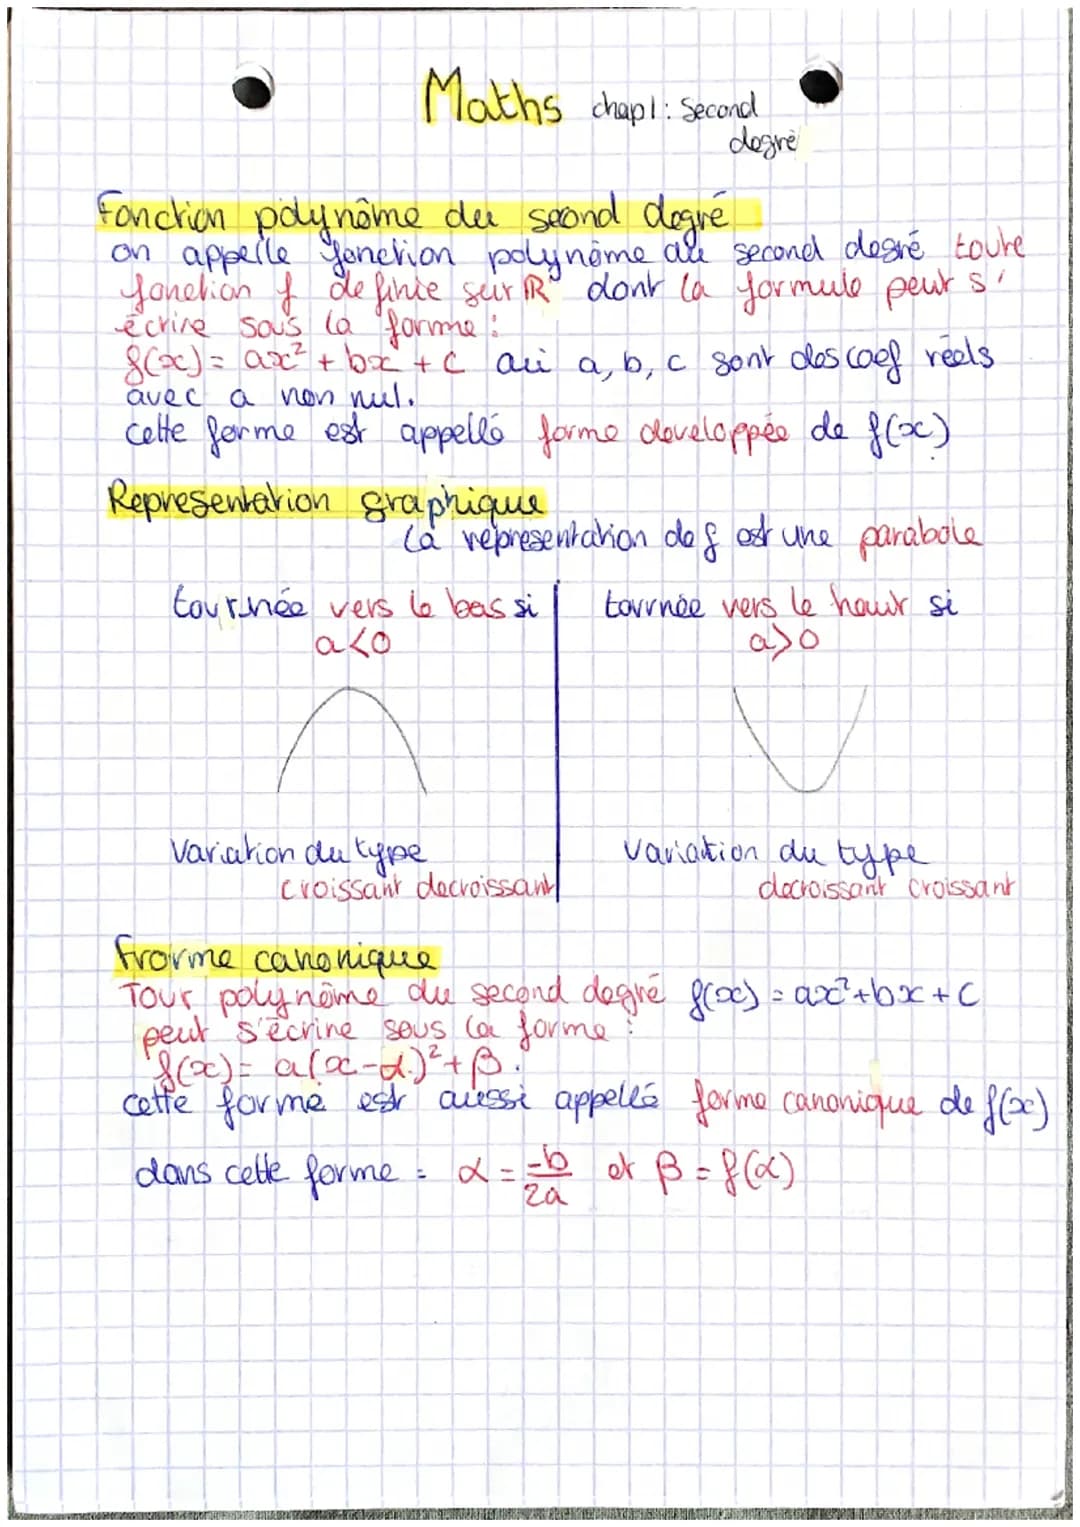 Maths chap1: Second
degré
Fonction polynôme du second degré
on appelle fonction polynôme du second degré toute
fonction f definie sur ℝ dont la formule peut s'
écrire sous la forme :
f(x) = ax² + bx + c où a, b, c sont des coef réels
avec a non nul.
cette forme est appellé forme developpée de f(x)
Representation graphique
La representation de f est une parabole
tournée vers le bas si
a<0
tournée vers le haut si
a>0
Variation du type
croissant decroissant
Variation du type
decroissant croissant
Frorme canonique
Tout polynôme du second degré f(x) = ax²+bx+c
peut s'écrire sous la forme :
f(x) = a(x-α)²+β.
cette forme est aussi appellé forme canonique de f(x)
dans cette forme = α = -b/2a et β = f(α)